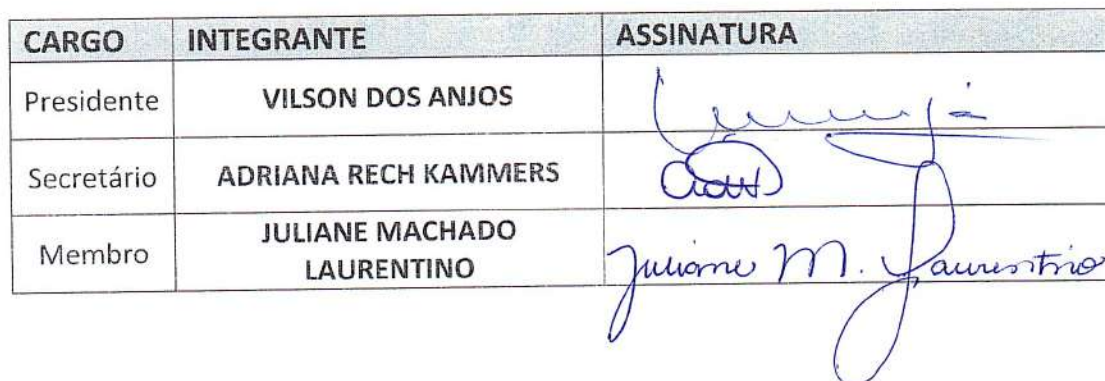 CARGO INTEGRANTE ASSINATURA
Presidente VILSON DOS ANJOS
Secretário ADRIANA RECH KAMMERS
Membro JULIANE MACHADO
LAURENTINO Juliane M. Laurentino